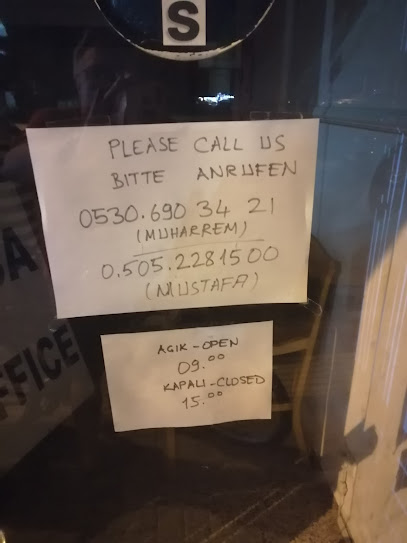 S
PLEASE CALL US
BITTE ANRUFEN
0530.690 34 21
(MUHARREM)
0.505.2281500
(MUSTAFA)
AÇIK-OPEN
09.00
KAPALI-CLOSED
15.00
FFICE